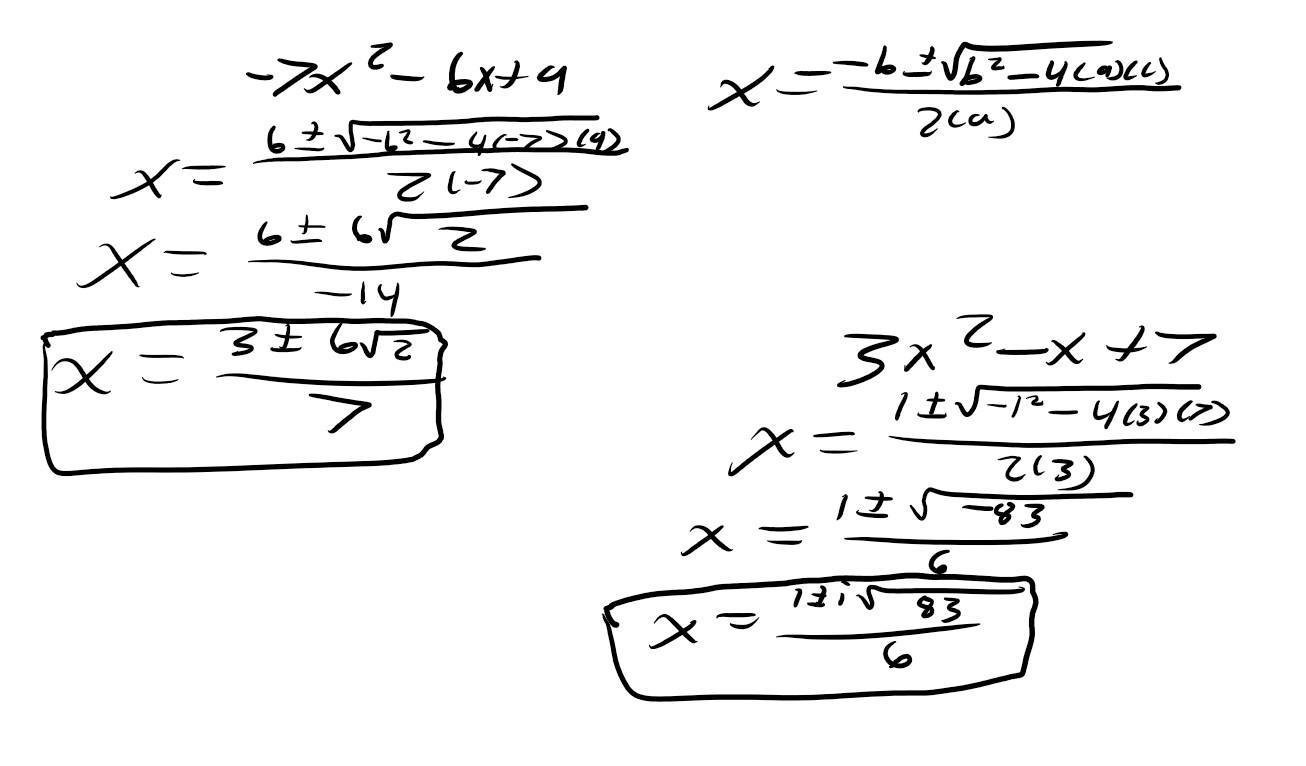 -7x² - 6x + 9
x = (6 ± √(-6² - 4(-7)(9))) / 2(-7)
x = (6 ± 6√2) / -14
x = (3 ± 6√2) / 7
x = (-b ± √(b² - 4(a)(c))) / 2(a)
3x² - x + 7
x = (1 ± √(-1² - 4(3)(7))) / 2(3)
x = (1 ± √-83) / 6
x = (1 ± i√83) / 6